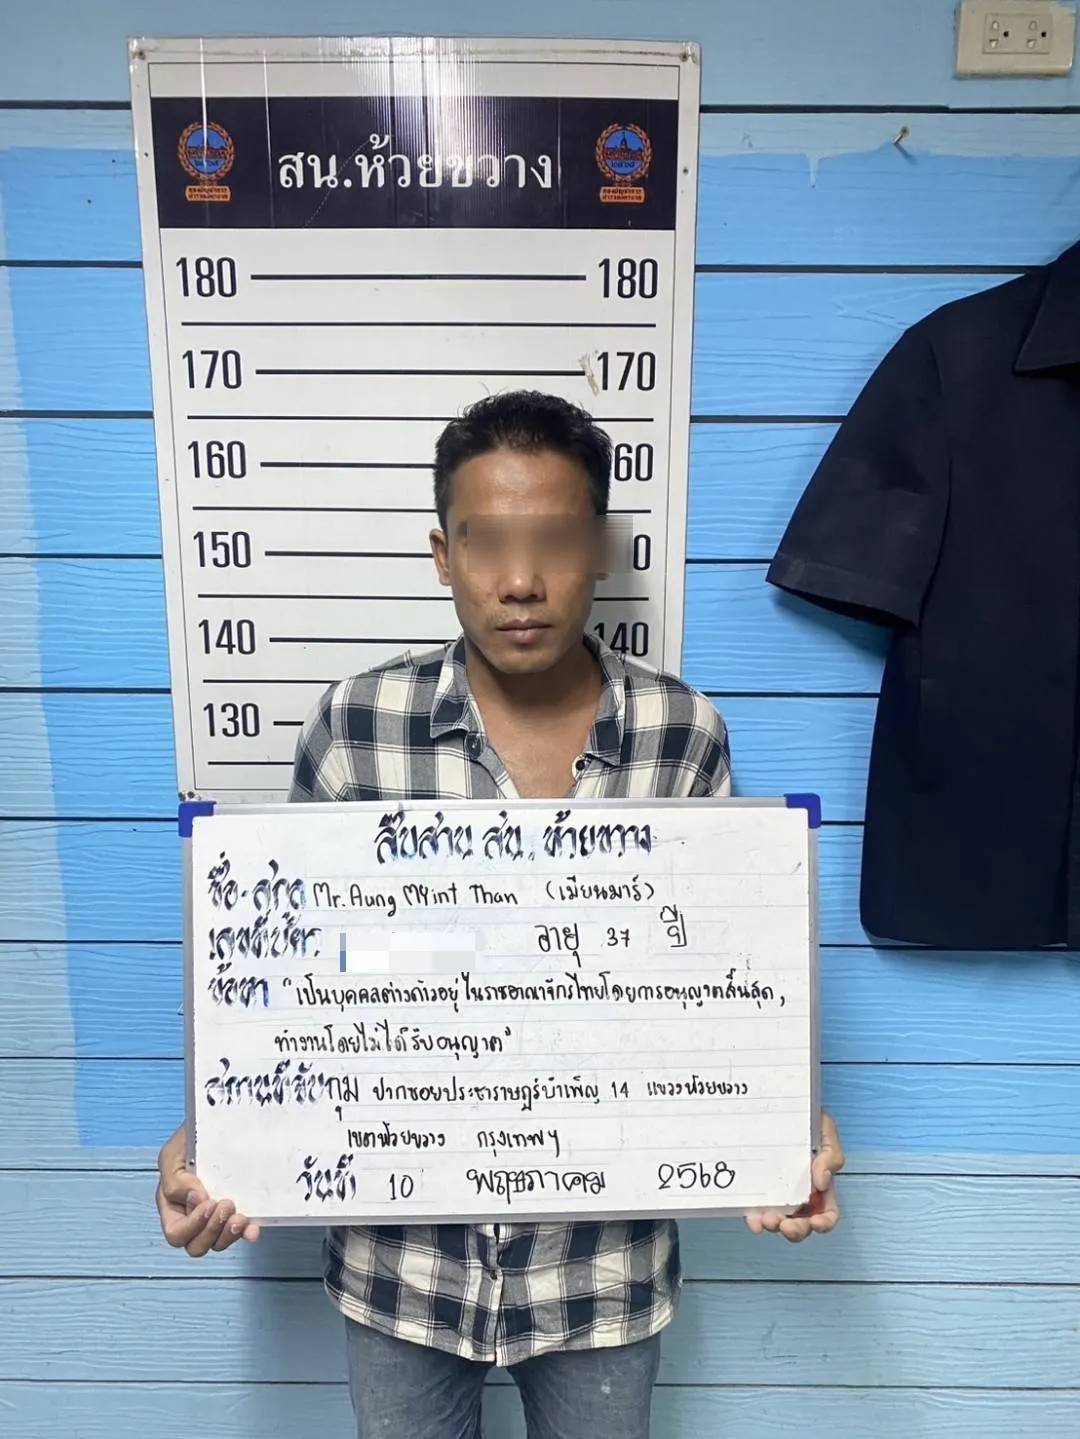 สน.ห้วยขวาง
180 180
170 170
160 60
150 0
140 140
130
สืบสวน สน. ห้วยขวาง
ชื่อ-สกุล Mr. Aung Myint Than (เมียนมาร์)
เลขที่บัตร. อายุ 37 ปี
ข้อหา "เป็นบุคคลต่างด้าวอยู่ในราชอาณาจักรไทยโดยการอนุญาตสิ้นสุด,
ทำงานโดยไม่ได้รับอนุญาต"
สถานที่จับกุม ปากซอยประชาราษฎร์บำเพ็ญ 14 แขวงห้วยขวาง
เขตห้วยขวาง กรุงเทพฯ
วันที่ 10 พฤษภาคม 2568